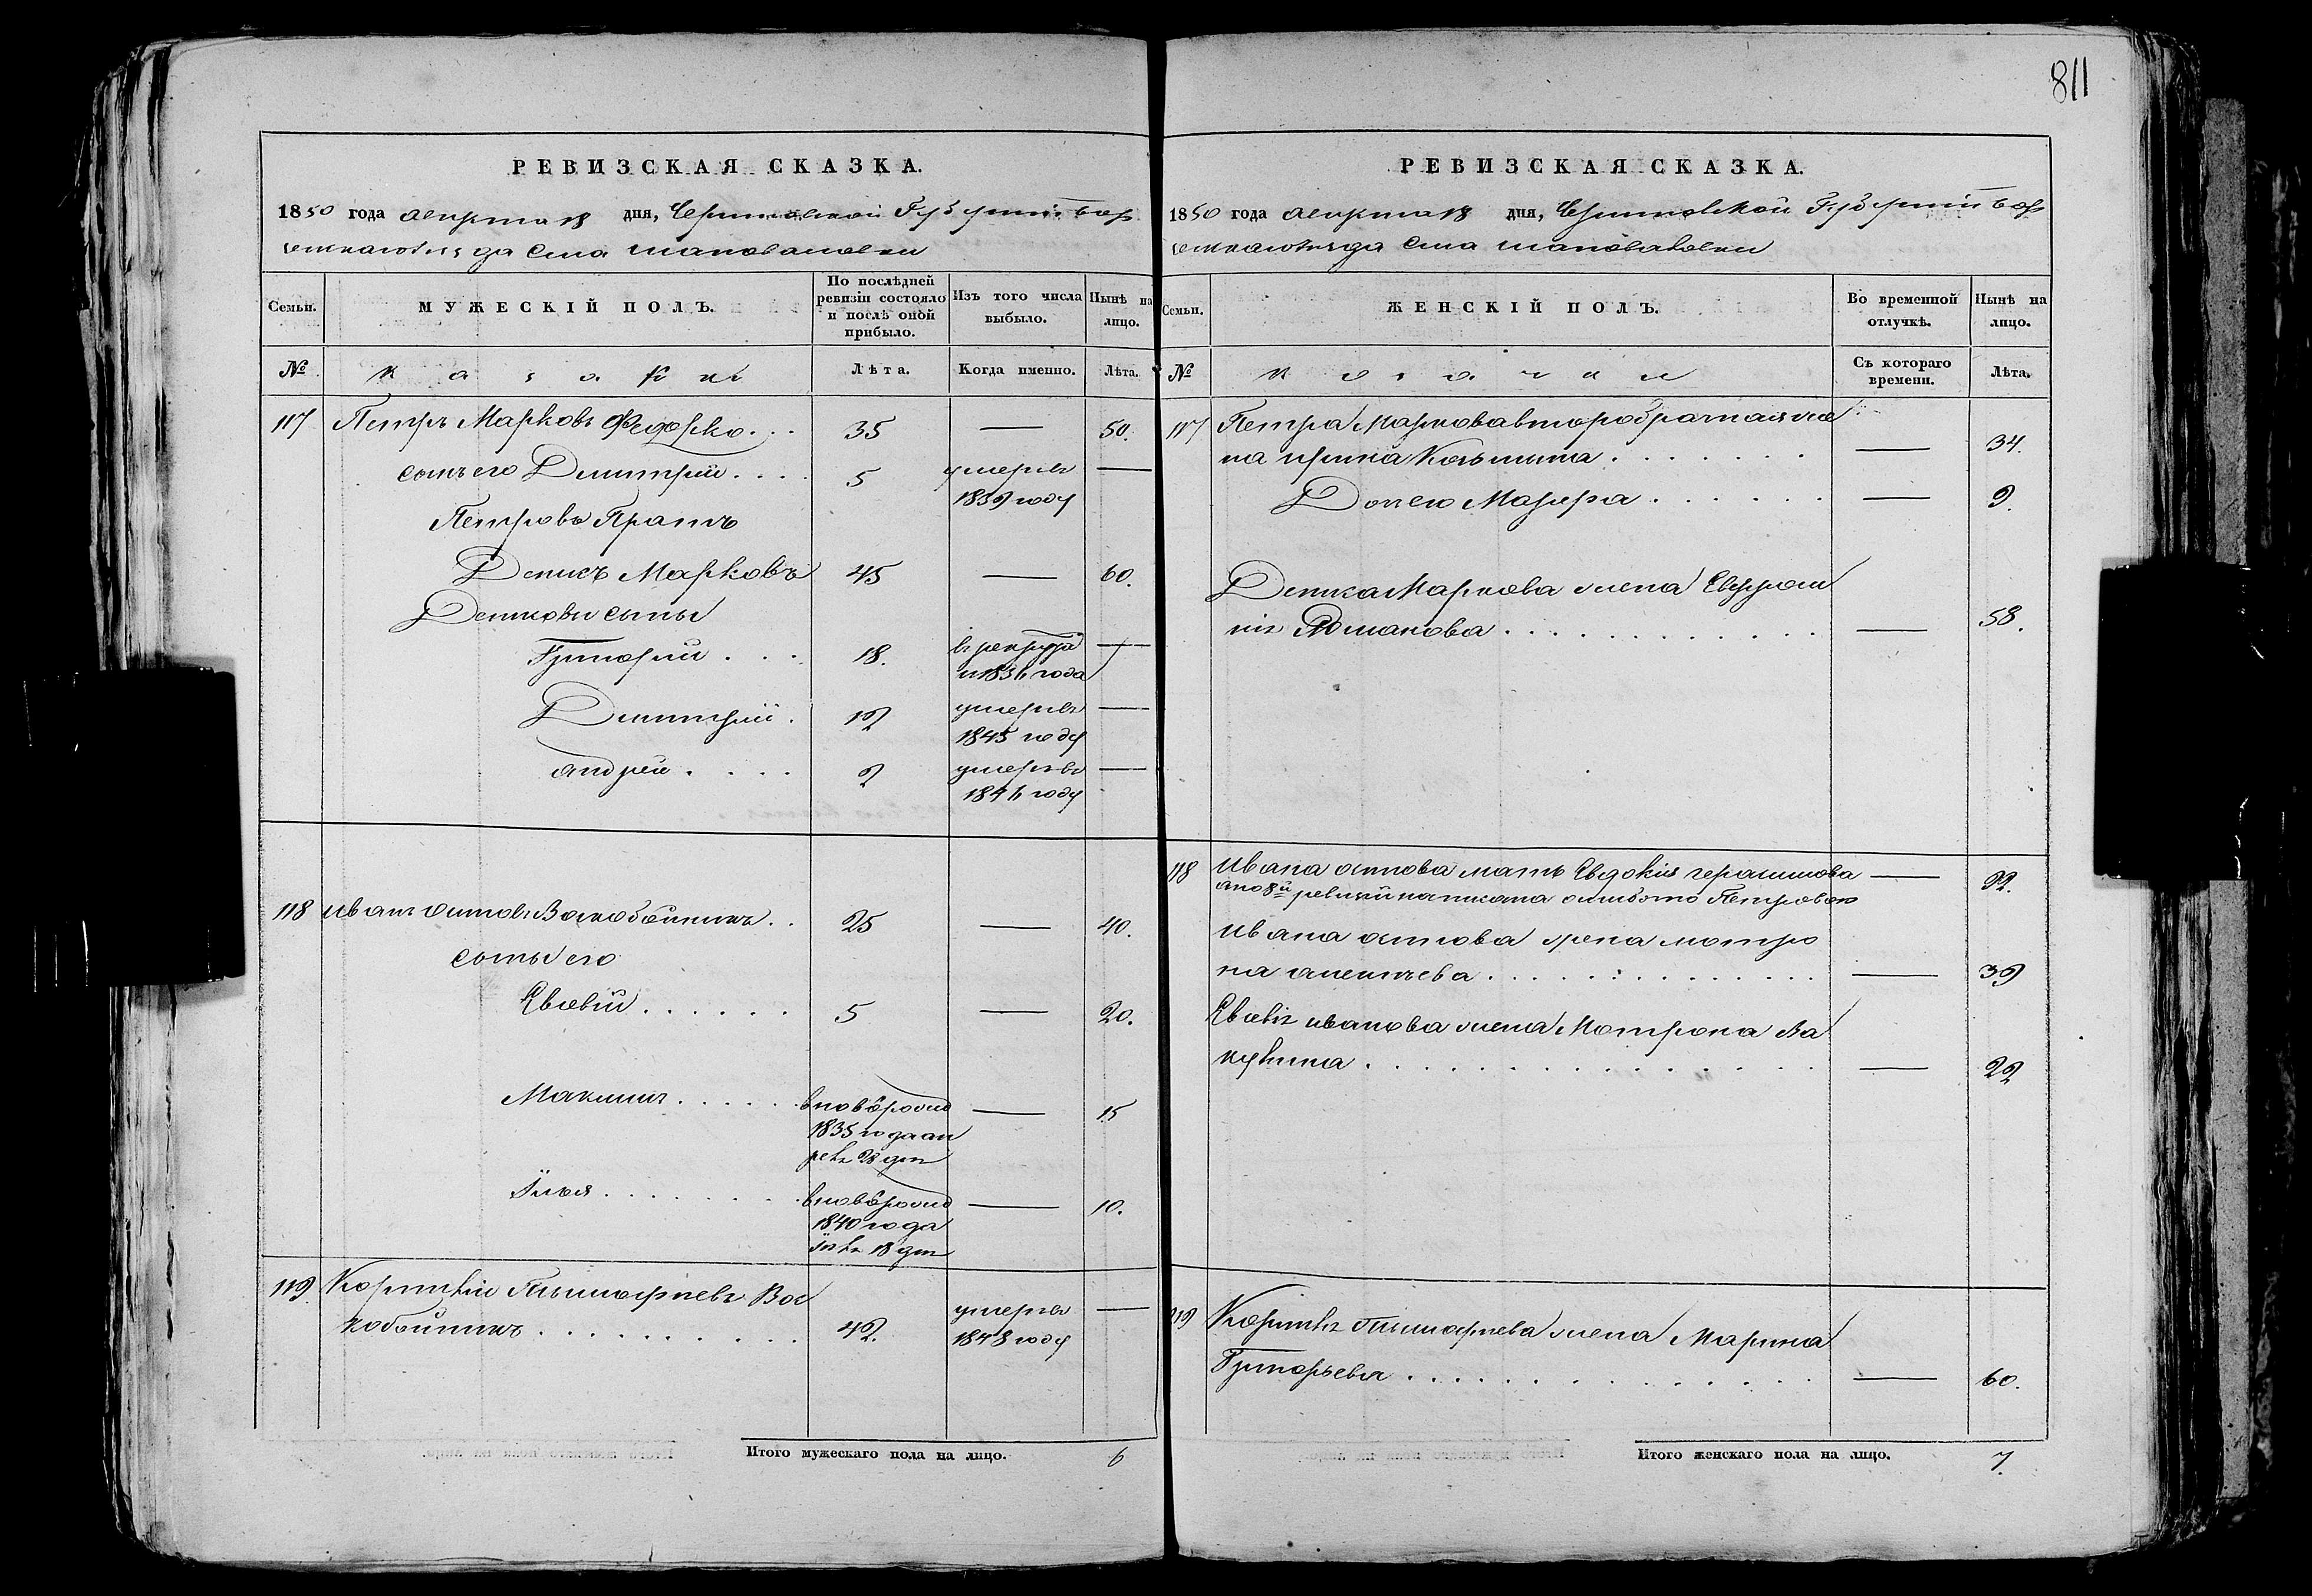 811
РЕВИЗСКАЯ СКАЗКА.
1850 года августа 18 дня, Черниговской Губерніи Бор
села Шаповаловки
Семьи.
МУЖЕСКІЙ ПОЛЪ.
По послѣдней
ревизіи состояло
и послѣ оной
прибыло.
Изъ того числа
выбыло.
Нынѣ на
лицо.
№
Козаки
Лѣта.
Когда именно.
Лѣта.
117 Петръ Марковъ Федорко 35 — 50.
сынъ его Димитрій 5 умеръ —
1839 году
Петровъ братъ
Денисъ Марковъ 45 — 60.
Денисовы сыны
Григорій 18. въ рекрута —
1836 года
Димитрій 12 умеръ —
1845 году
Андрей 2 умеръ —
1846 году
118 Иванъ Осиповъ Воскобойникъ 25 — 40.
сыны его
Евсевій 5 — 20.
Максимъ вновь рожд — 15
1835 года ап
реля 28 дня
Илья вновь рожд — 10.
1840 года
18 дня
119. Корнилій Вос
кобойникъ 42. умеръ —
1848 году
Итого мужескаго пола на лицо. 6
РЕВИЗСКАЯ СКАЗКА.
1850 года августа 18 дня, Черниговской Губерніи Бор
села Шаповаловки
Семьи.
ЖЕНСКІЙ ПОЛЪ.
Во временной
отлучкѣ.
Нынѣ на
лицо.
№
Козачки
Съ котораго
времени.
Лѣта.
117 Петра Маркова второбрачная же
на Ирина Козьмина — 34.
Дочь его Мавра — 9.
Дениса Маркова жена Евфросы
нія Романова — 58.
118 Ивана Осипова мать Евдокія Герасимова —
а по 8й ревизіи написана ошибкою Петровою
Ивана Осипова жена Мотро
на Алексѣева — 39
Евсевія Иванова жена Мотрона Ва
кулина — 22
119 Корнилія жена Марина
Григорьева — 60.
Итого женскаго пола на лицо. 7.